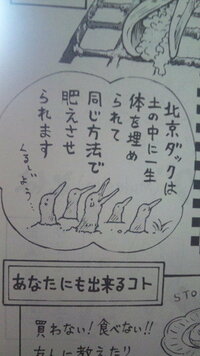 北京ダックは
土の中に一生
体を埋め
られて
同じ方法で
肥えさせ
られます
くるしょう
あなたにも出来るコト
買わない!食べない!!
友人に教えたり
STO